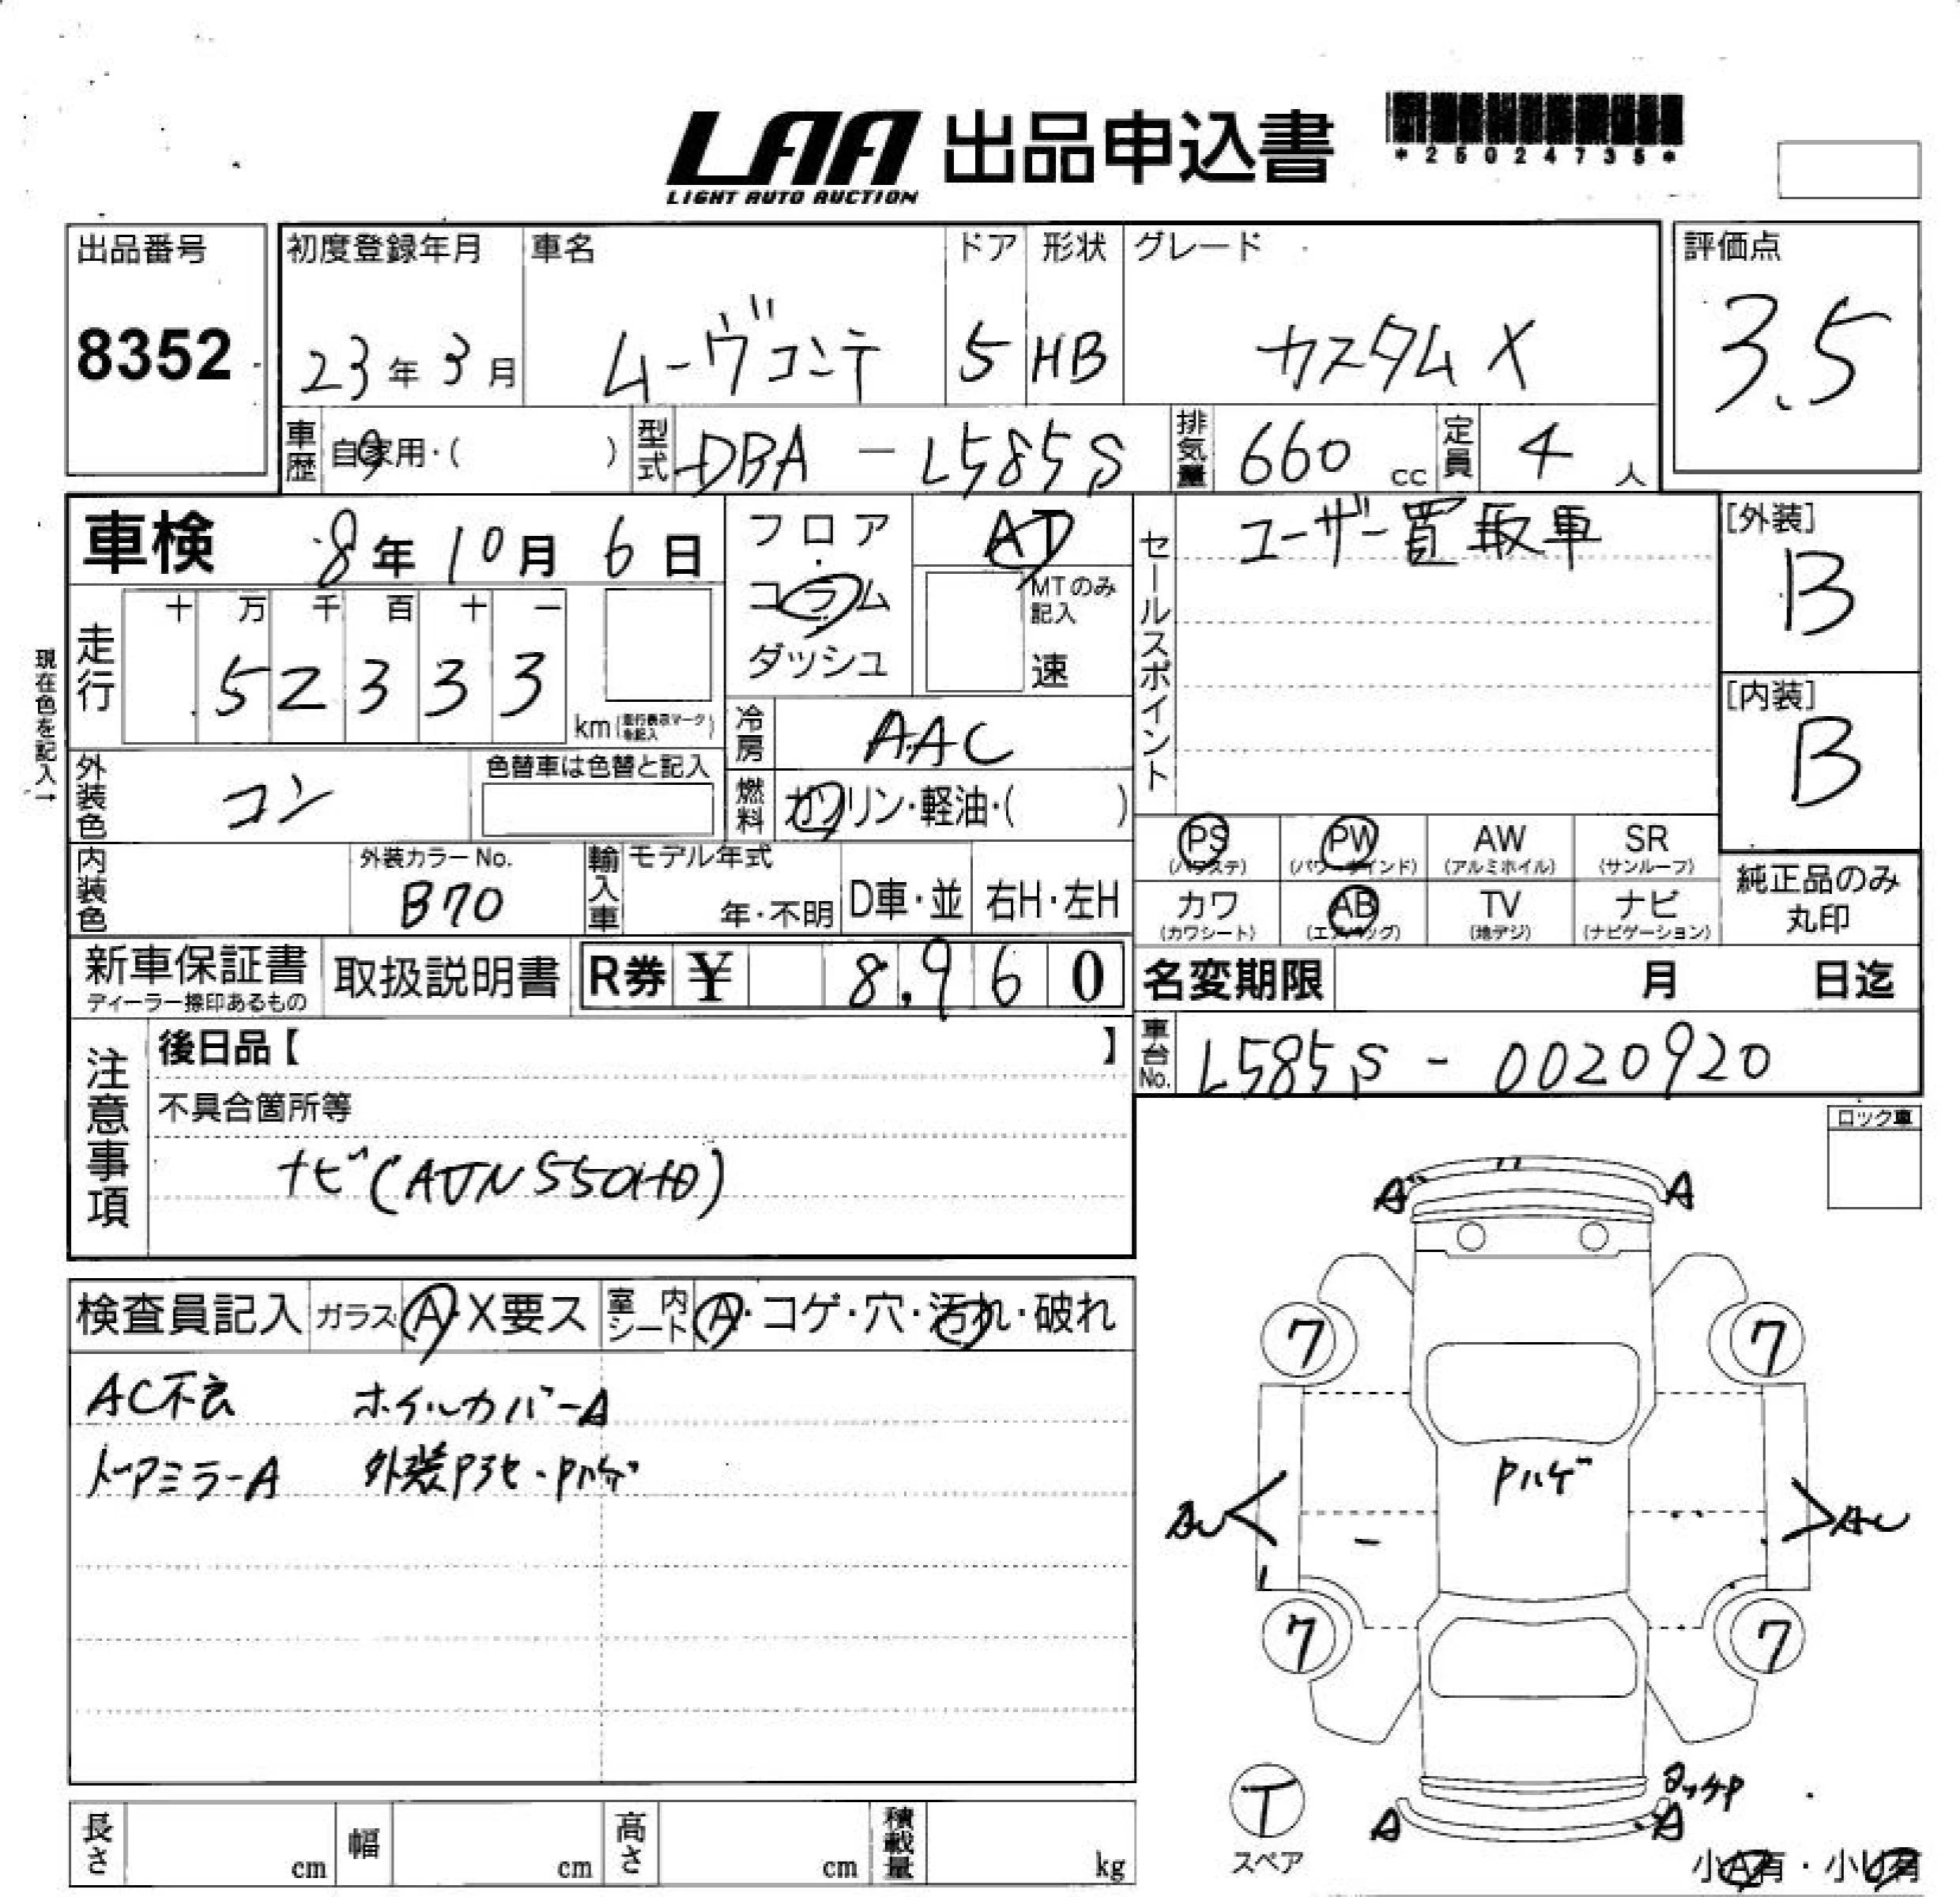 LAA 出品申込書
LIGHT AUTO AUCTION
*25024735*
出品番号
8352
初度登録年月 車名 ドア 形状 グレード
23年3月 ムーヴコンテ 5 HB カスタムX
評価点
3.5
車歴 自家用・( ) 型式 DBA-L585S 排気量 660 cc 定員 4 人
車検 8年10月6日
フロア・コラム ダッシュ
AT
MTのみ記入
速
セールスポイント
ユーザー買取車
[外装]
B
[内装]
B
現在色を記入→
走行
十 万 千 百 十 一
5 2 3 3 3
km(走行表示マークを記入)
冷房 AAC
燃料 ガソリン・軽油・( )
外装色 コン
色替車は色替と記入
内装色
外装カラーNo.
B70
輸入車 モデル年式
年・不明 D車・並 右H・左H
PS (パワステ) PW (パワーウインド) AW (アルミホイル) SR (サンルーフ)
カワ (カワシート) AB (エアバッグ) TV (地デジ) ナビ (ナビゲーション)
純正品のみ丸印
新車保証書
ディーラー捺印あるもの
取扱説明書
R券 ¥ 8,960
名変期限 月 日迄
車台No. L585S-0020920
注意事項
後日品【 】
不具合箇所等
ナビ(AVN550HD)
ロック車
検査員記入 ガラス A・X要ス 室内シート A・コゲ・穴・汚れ・破れ
AC不良 ホイルカバーA
ドアミラーA 外装Pヨセ・Pハゲ
A A
7 7
Pハゲ
AU AU
7 7
T
スペア
タッチP
A A
小A有・小U有
長さ cm 幅 cm 高さ cm 積載量 kg